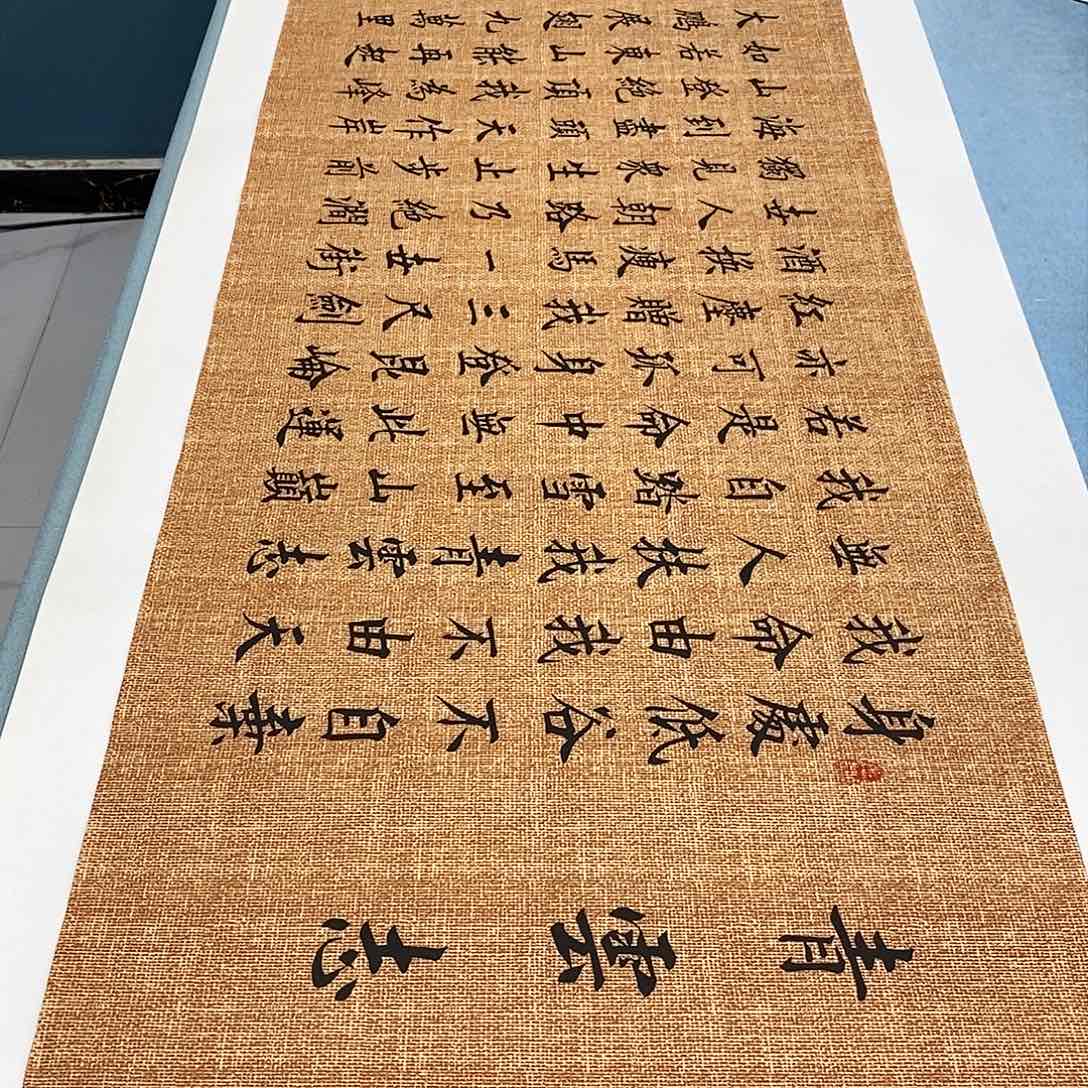 青雲志
身處低谷不自棄
我命由我不由天
無人扶我青雲志
我自踏雪至山巔
若是命中無此運
亦可孤身登昆崘
紅塵贈我三尺劍
酒換瘦馬一世
世人朝路乃絕澗
獨見衆生止步前
海到盡頭天作岸
山登絕頂我為峰
如若東山能再起
大鵬展翅九萬里